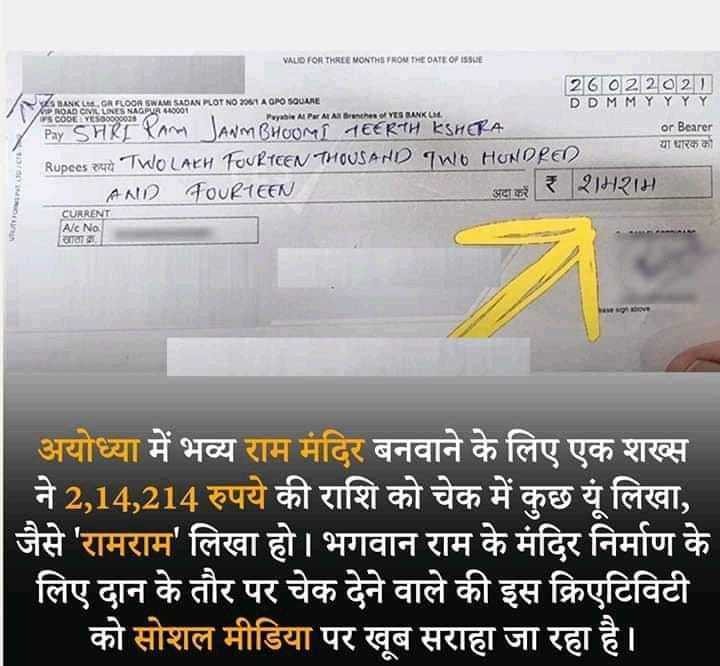 VALID FOR THREE MONTHS FROM THE DATE OF ISSUE
26022021
D D M M Y Y Y Y
YES BANK Ltd., GR FLOOR SWAMI SADAN PLOT NO 206/1 A GPO SQUARE
VIP ROAD CIVIL LINES NAGPUR 440001
IFS CODE : YESB0000028
Payable At Par At All Branches of YES BANK Ltd.
Pay SHRI RAM JANMBHOOMI TEERTH KSHETRA
or Bearer
या धारक को
Rupees रुपये TWO LAKH FOURTEEN THOUSAND TWO HUNDRED
AND FOURTEEN
अदा करें ₹ रामराम
CURRENT
A/c No.
खाता क्र.
Please sign above
अयोध्या में भव्य राम मंदिर बनवाने के लिए एक शख्स
ने 2,14,214 रुपये की राशि को चेक में कुछ यूं लिखा,
जैसे 'रामराम' लिखा हो। भगवान राम के मंदिर निर्माण के
लिए दान के तौर पर चेक देने वाले की इस क्रिएटिविटी
को सोशल मीडिया पर खूब सराहा जा रहा है।